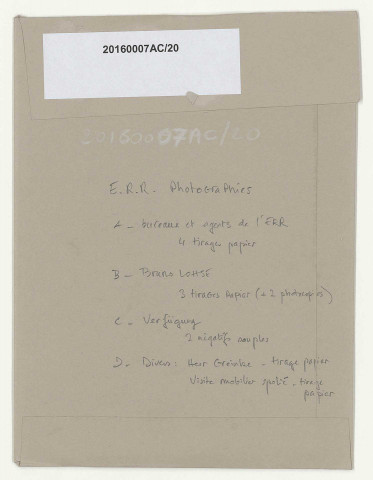 20160007AC/20
20160007AC/20
E.R.R. Photographies
A - bureaux et agents de l'ERR
4 tirages papier
B - Bruno LOHSE
3 tirages papier (+ 2 photocopies)
C - Verfügung
2 négatifs souples
D - Divers : Herr - tirage papier
Visite mobilier spolié - tirage
papier